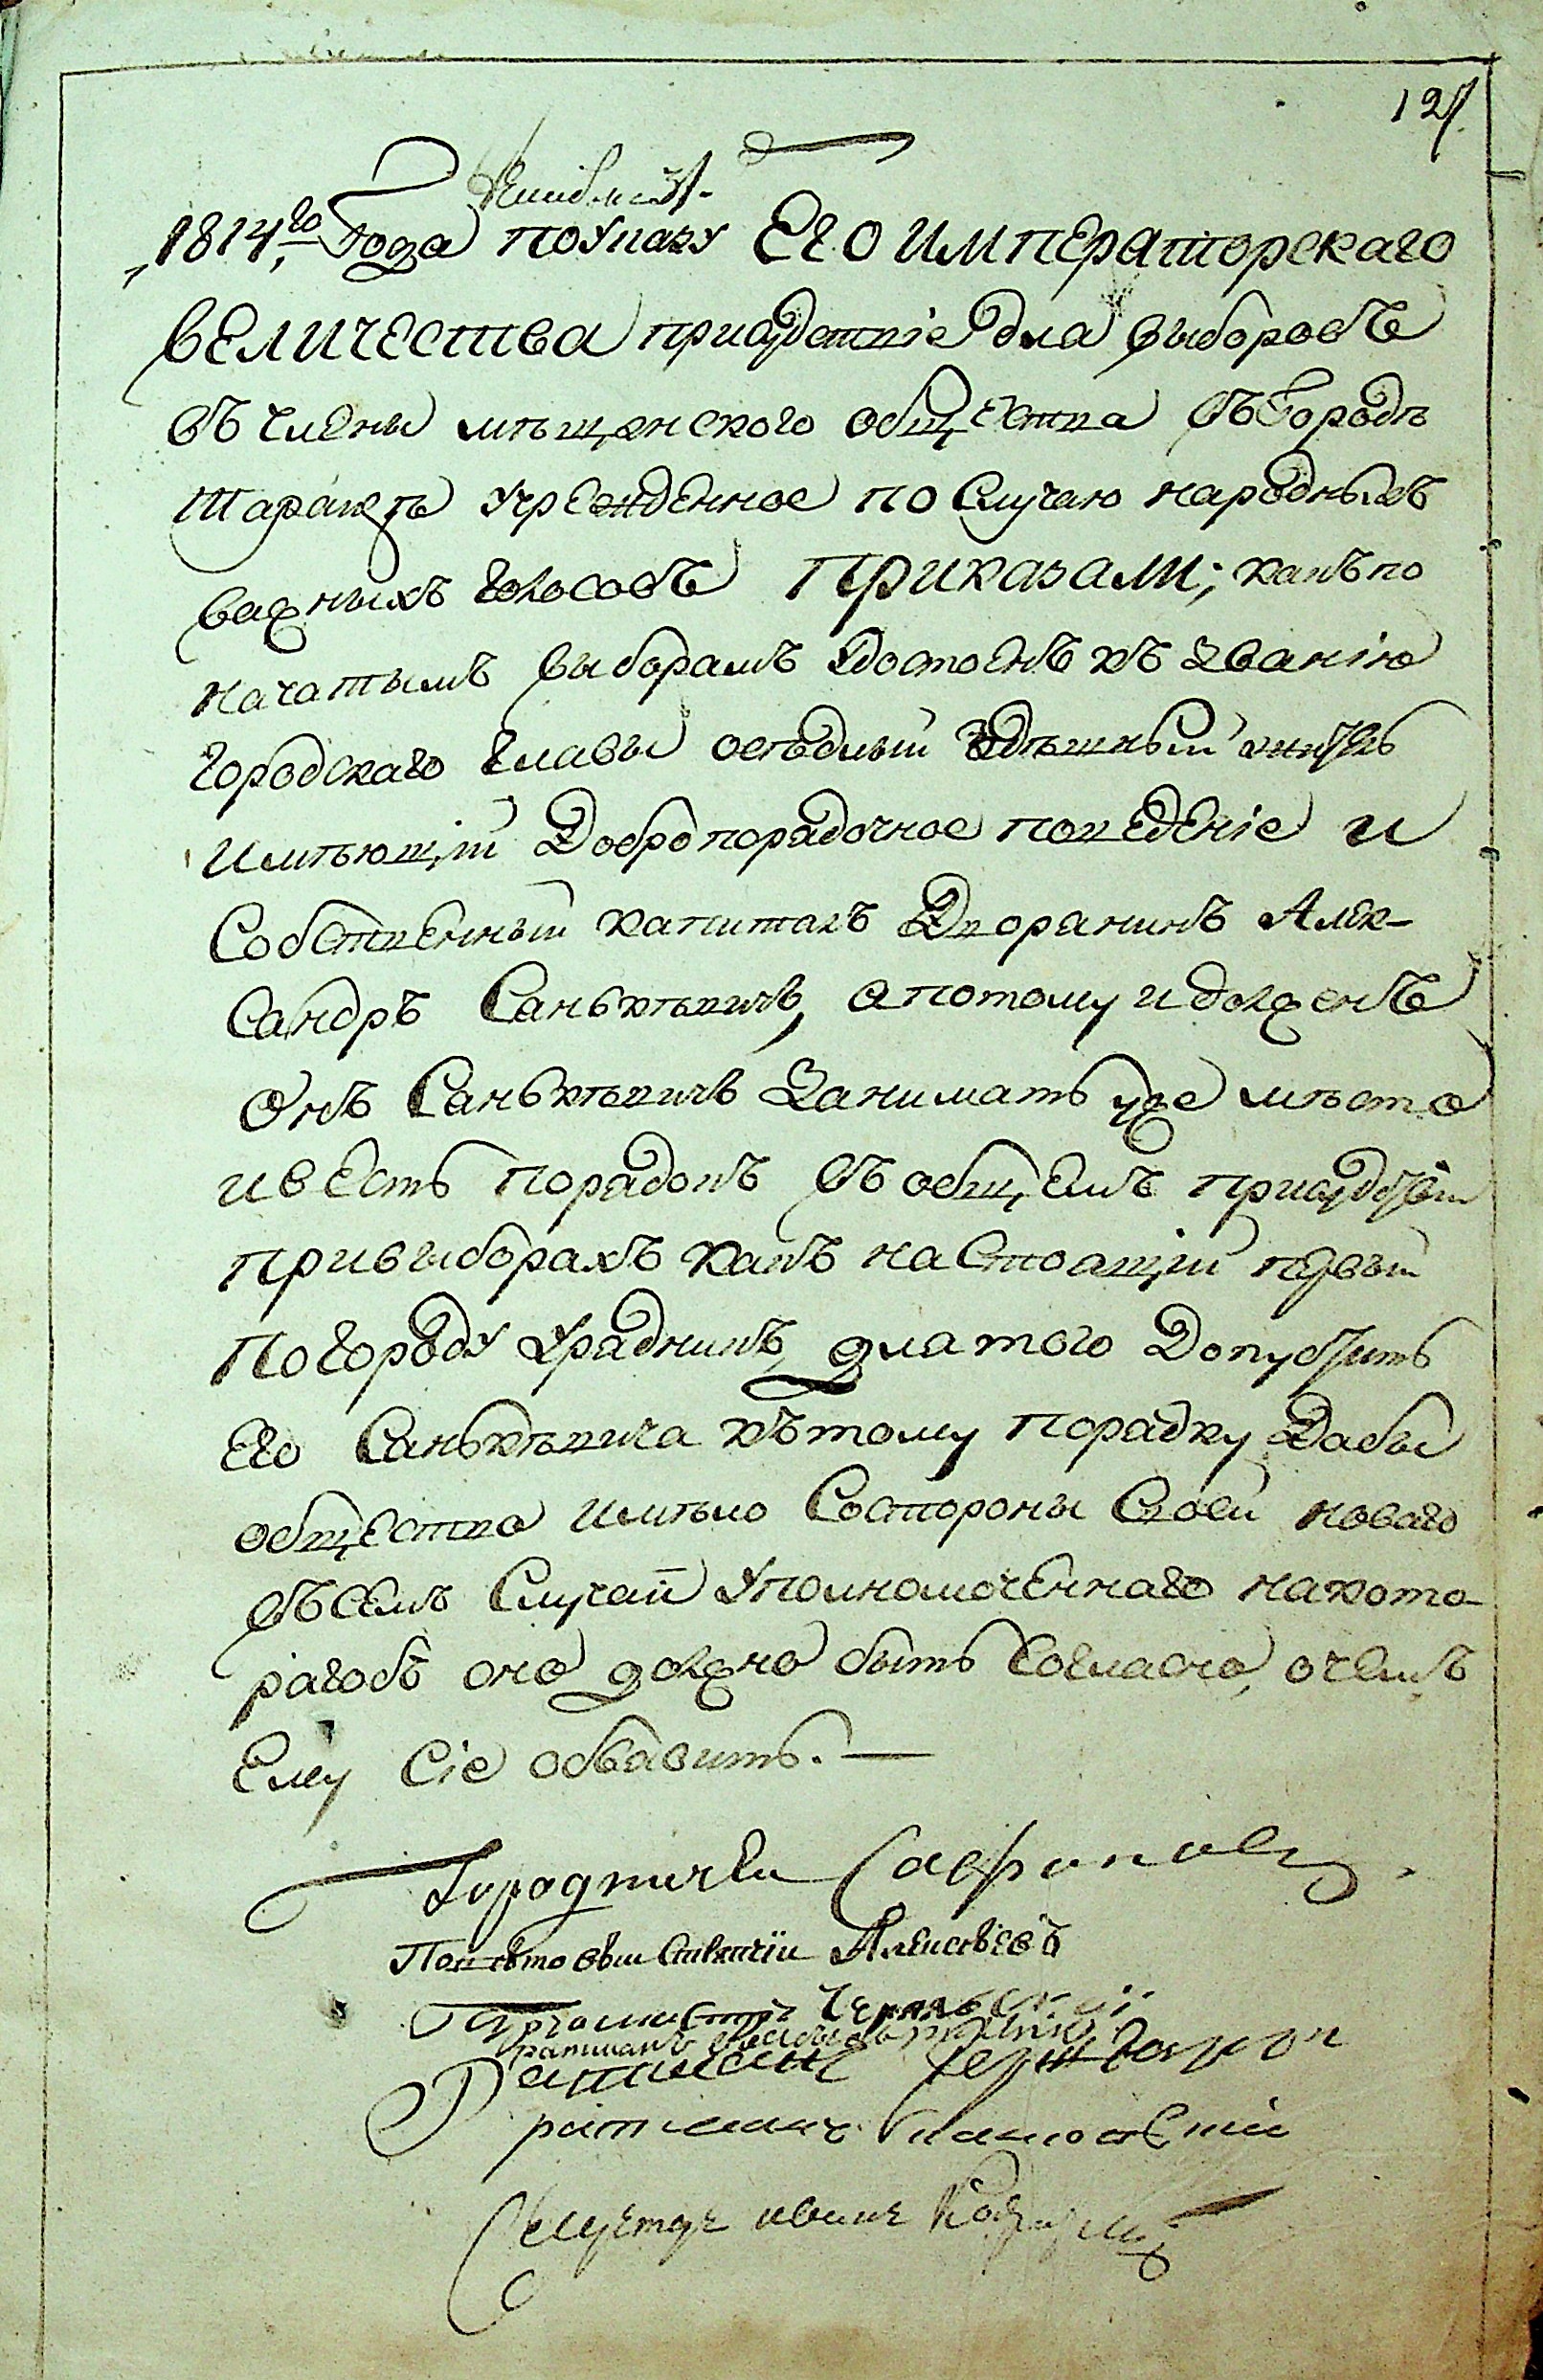 127.
1814,го Года поуказу Его императорскаго
величества присудствіе для выборовъ
въ члены мѣщанского общества въ Городѣ
Таращѣ учрежденное по Случаю народныхъ
важныхъ голосовъ Приказали; какъ по
начатымъ выборамъ удостоенъ къ званію
городскаго главы осѣдлый здѣшный житель
имѣющій Добропорядочное поведеніе и
Собственный капиталъ Дворянинъ Алек-
сандръ Саньктѣвичъ, а потому и долженъ
онъ Саньктѣвичъ занимать уже мѣсто
и весть порядокъ въ общемъ присудствіи
при выборахъ какъ настоящій первый
по городу урядникъ, для того Допустить
Его Саньктѣвича къ тому порядку Дабы
общество имѣло Состороны своей новаго
въ семъ Случаи уполномоченнаго накото-
рагобъ оно должно быть Согласно, о чемъ
Ему Сіе объявить. —
Городничей Сафоновъ.
Повѣтовый Стряпчій Алексѣевъ
Бургомистръ
ратманъ
Ратманъ
ратманъ
Секретарь иванъ